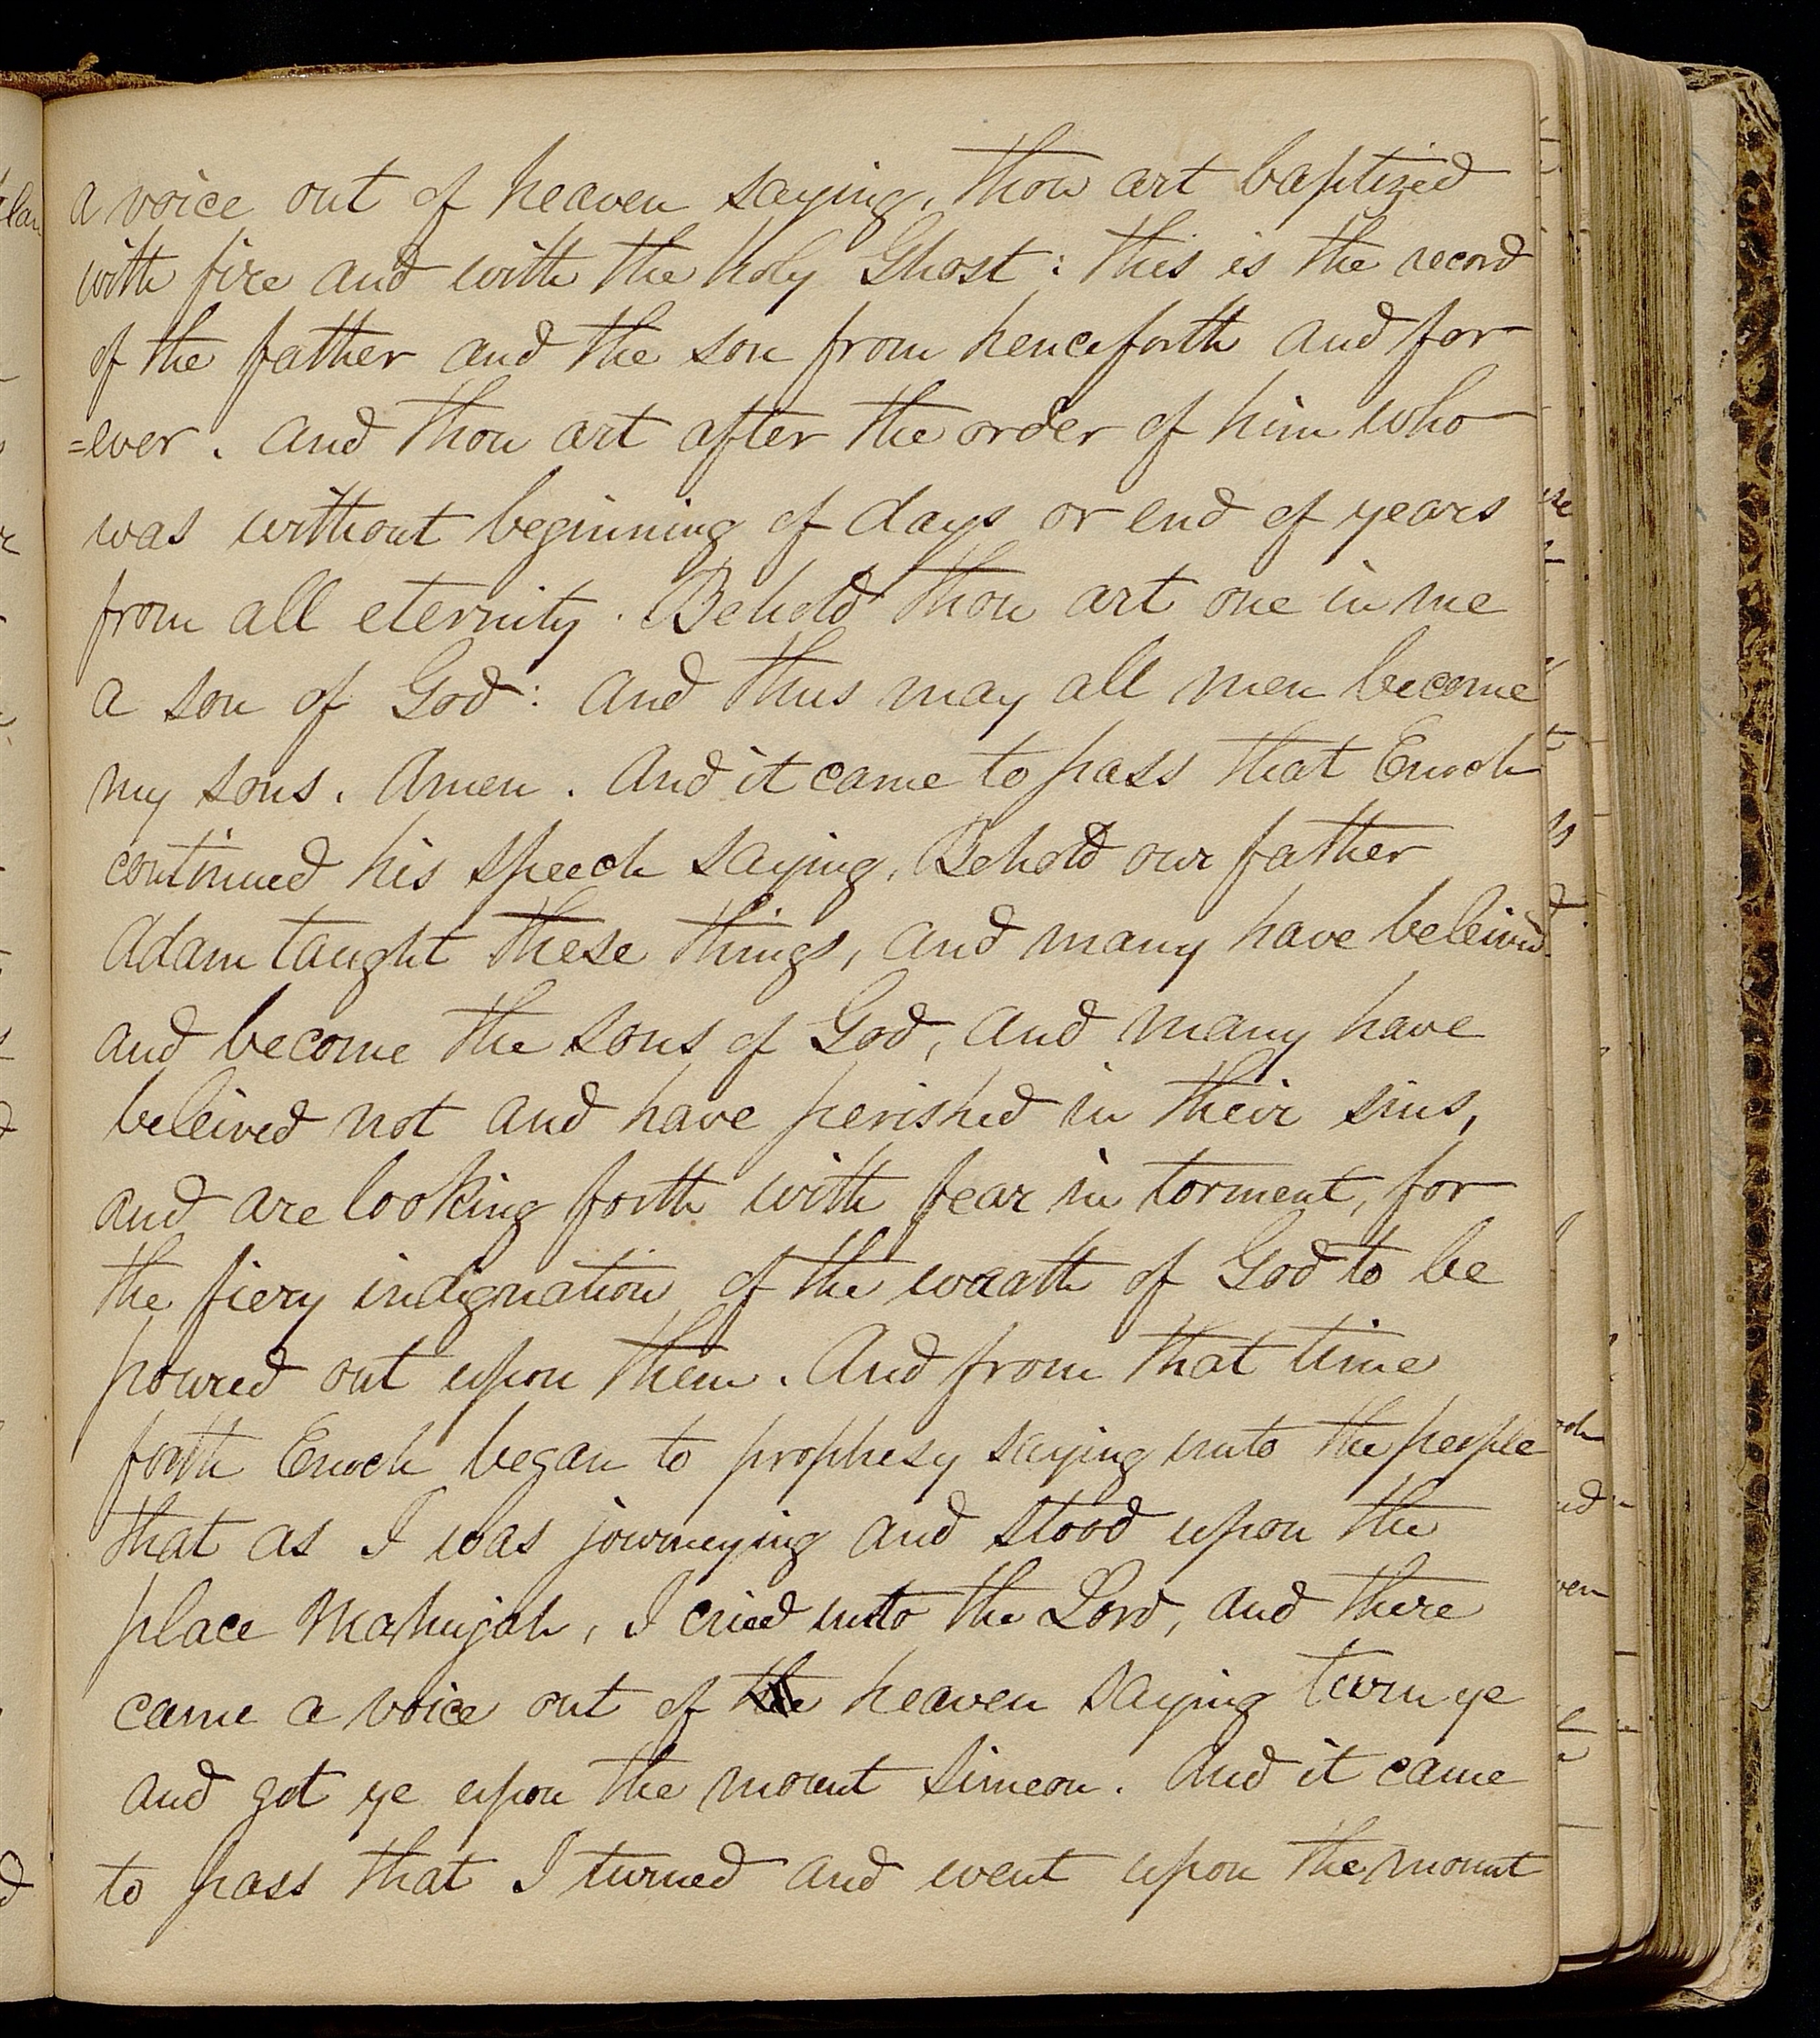 a voice out of heaven saying, thou art baptized
with fire and with the holy Ghost: this is the record
of the father and the son from henceforth and for
=ever. and thou art after the order of him who
was without beginning of days or end of years
from all eternity. Behold thou art one in me
a son of God: and thus may all men become
my sons. Amen. And it came to pass that Enoch
continued his speech saying, Behold our father
Adam taught these things, and many have beleived
and become the sons of God, and many have
beleived not and have perished in their sins,
and are looking forth with fear in torment, for
the fiery indignation of the wrath of God to be
poured out upon them. And from that time
forth Enoch began to prophesy saying unto the people
that as I was journeying and stood upon the
place Mahujah, I cried unto the Lord, and there
came a voice out of the heaven saying turn ye
and get ye upon the mount Simeon. And it came
to pass that I turned and went upon the mount